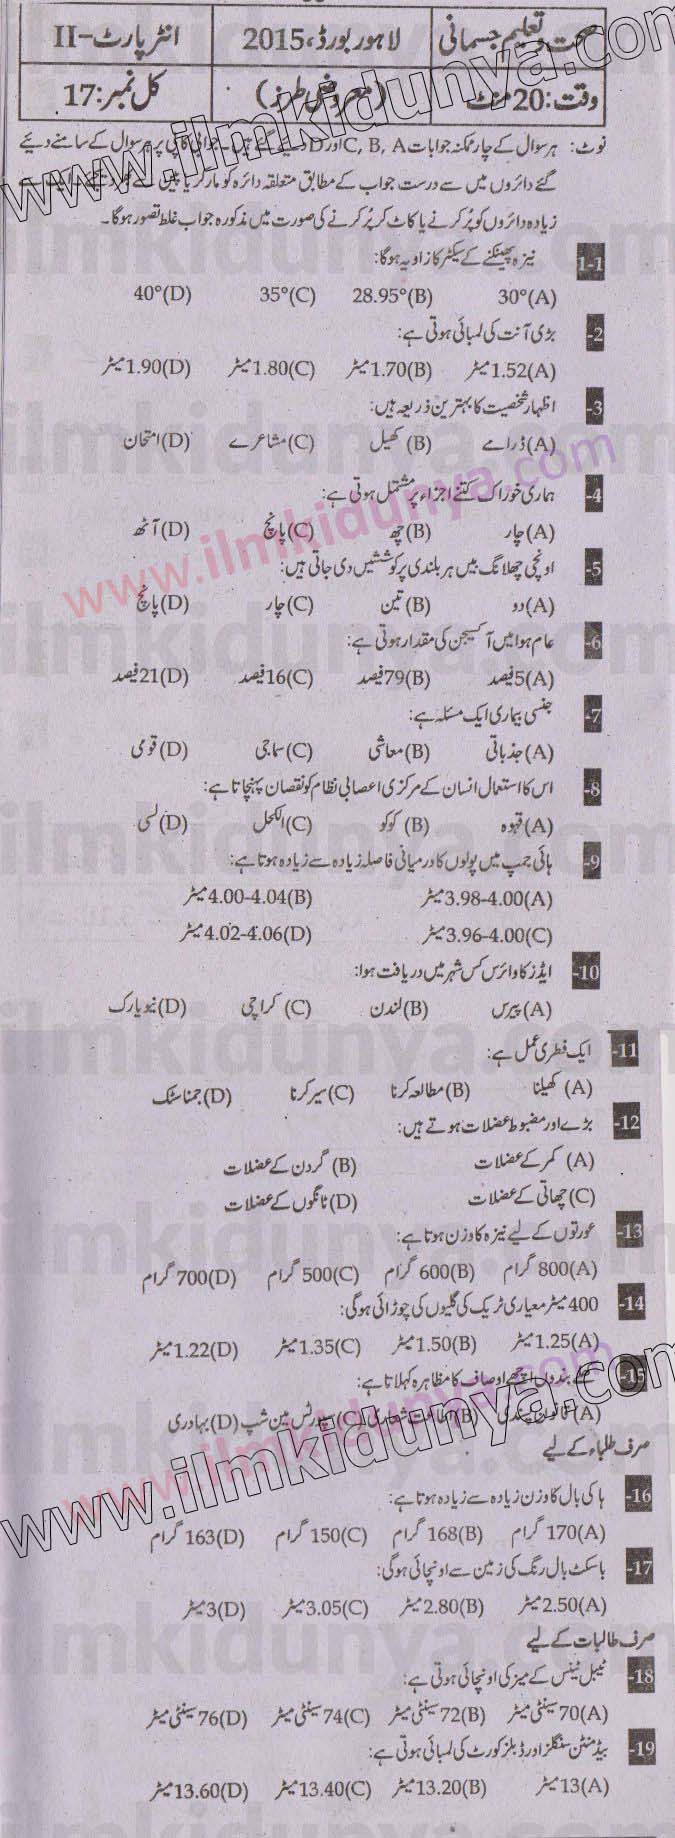 صحت و تعلیم جسمانی لاہور بورڈ، 2015 انٹر پارٹ-II
وقت: 20 منٹ (معروضی طرز) کل نمبر: 17
نوٹ: ہر سوال کے چار ممکنہ جوابات C, B, A اور D دیئے گئے ہیں۔ جوابی کاپی پر ہر سوال کے سامنے دیئے
گئے دائروں میں سے درست جواب کے مطابق متعلقہ دائرہ کو مارکر یا پین سے بھر دیجئے۔ ایک سے
زیادہ دائروں کو پُر کرنے یا کاٹ کر پُر کرنے کی صورت میں مذکورہ جواب غلط تصور ہوگا۔
1-1 نیزہ پھینکنے کے سیکٹر کا زاویہ ہوگا:
(A) 30° (B) 28.95° (C) 35° (D) 40°
2- بڑی آنت کی لمبائی ہوتی ہے:
(A) 1.52 میٹر (B) 1.70 میٹر (C) 1.80 میٹر (D) 1.90 میٹر
3- اظہار شخصیت کا بہترین ذریعہ ہیں:
(A) ڈرامے (B) کھیل (C) مشاعرے (D) امتحان
4- ہماری خوراک کتنے اجزاء پر مشتمل ہوتی ہے:
(A) چار (B) چھ (C) پانچ (D) آٹھ
5- اونچی چھلانگ میں ہر بلندی پر کوششیں دی جاتی ہیں:
(A) دو (B) تین (C) چار (D) پانچ
6- عام ہوا میں آکسیجن کی مقدار ہوتی ہے:
(A) 5 فیصد (B) 79 فیصد (C) 16 فیصد (D) 21 فیصد
7- جنسی بیماری ایک مسئلہ ہے:
(A) جذباتی (B) معاشی (C) سماجی (D) قومی
8- اس کا استعمال انسان کے مرکزی اعصابی نظام کو نقصان پہنچاتا ہے:
(A) قہوہ (B) کوکو (C) الکحل (D) لسی
9- ہائی جمپ میں پولوں کا درمیانی فاصلہ زیادہ سے زیادہ ہوتا ہے:
(A) 3.98-4.00 میٹر (B) 4.00-4.04 میٹر
(C) 3.96-4.00 میٹر (D) 4.02-4.06 میٹر
10- ایڈز کا وائرس کس شہر میں دریافت ہوا:
(A) پیرس (B) لندن (C) کراچی (D) نیویارک
11- ایک فطری عمل ہے:
(A) کھیلنا (B) مطالعہ کرنا (C) سیر کرنا (D) جمناسٹک
12- بڑے اور مضبوط عضلات ہوتے ہیں:
(A) کمر کے عضلات (B) گردن کے عضلات
(C) چھاتی کے عضلات (D) ٹانگوں کے عضلات
13- عورتوں کے لیے نیزہ کا وزن ہوتا ہے:
(A) 800 گرام (B) 600 گرام (C) 500 گرام (D) 700 گرام
14- 400 میٹر معیاری ٹریک کی گلیوں کی چوڑائی ہوگی:
(A) 1.25 میٹر (B) 1.50 میٹر (C) 1.35 میٹر (D) 1.22 میٹر
15- کھلے بندوں اچھے اوصاف کا مظاہرہ کہلاتا ہے:
(A) قانون پسندی (B) اطاعت شعاری (C) سپورٹس مین شپ (D) بہادری
صرف طلباء کے لیے
16- ہاکی بال کا وزن زیادہ سے زیادہ ہوتا ہے:
(A) 170 گرام (B) 168 گرام (C) 150 گرام (D) 163 گرام
17- باسکٹ بال رنگ کی زمین سے اونچائی ہوگی:
(A) 2.50 میٹر (B) 2.80 میٹر (C) 3.05 میٹر (D) 3 میٹر
صرف طالبات کے لیے
18- ٹیبل ٹینس کے میز کی اونچائی ہوتی ہے:
(A) 70 سینٹی میٹر (B) 72 سینٹی میٹر (C) 74 سینٹی میٹر (D) 76 سینٹی میٹر
19- بیڈمنٹن سنگلز اور ڈبلز کورٹ کی لمبائی ہوتی ہے:
(A) 13 میٹر (B) 13.20 میٹر (C) 13.40 میٹر (D) 13.60 میٹر
www.ilmkidunya.com